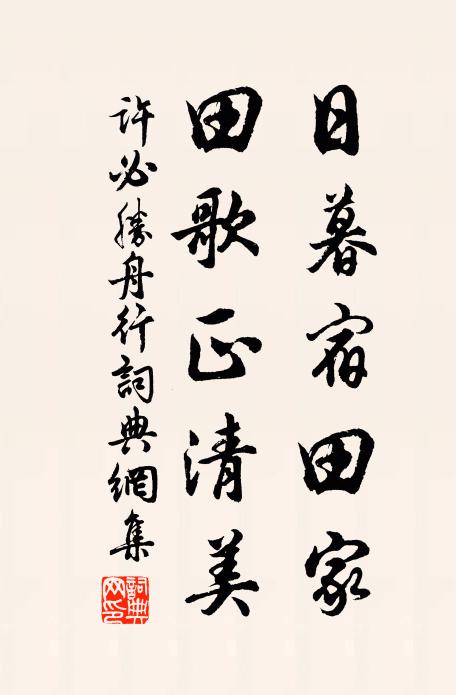 日暮宿田家
田歌正清美
許必勝舟行詞典網集
詞典網印